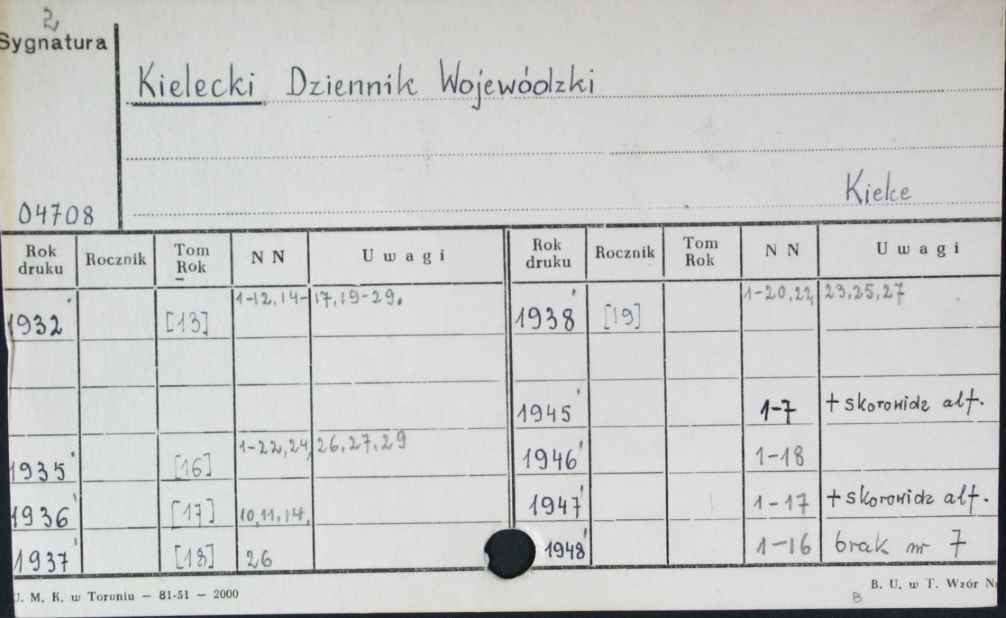 2
Sygnatura
Kielecki Dziennik Wojewódzki
Kielce
04708
Rok druku Rocznik Tom Rok NN Uwagi Rok druku Rocznik Tom Rok NN Uwagi
1932 [13] 1-12, 14-17, 19-29. 1938 [19] 1-20, 22, 23, 25, 27
1945 1-7 + skorowidz alf.
1935 [16] 1-22, 24, 26, 27, 29 1946 1-18
1936 [17] 10, 11, 14, 1947 1-17 + skorowidz alf.
1937 [18] 26 1948 1-16 brak nr 7
U. M. K. w Toruniu — 81-51 — 2000
B. U. w T. Wzór N
B